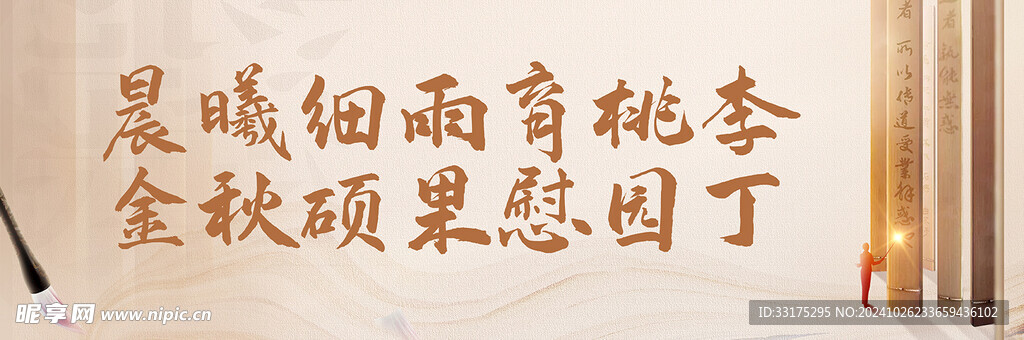 晨曦细雨育桃李
金秋硕果慰园丁
者 所以传道受業解惑
者 孰能無惑
昵享网 www.nipic.cn
ID:33175295 NO:20241026233659436102